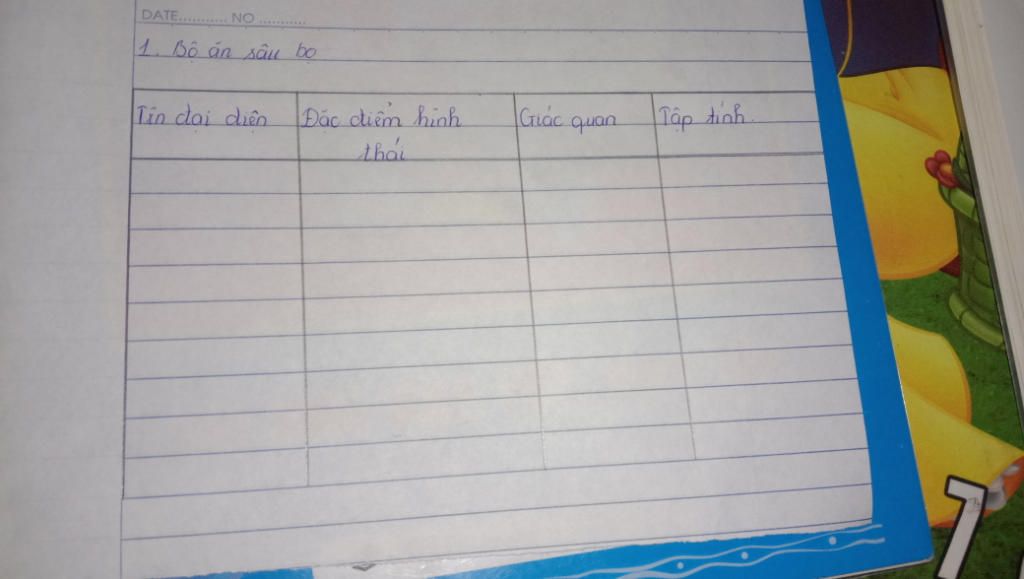 DATE........... NO ...........
1. Bộ ăn sâu bọ
Tên đại diện Đặc điểm hình Giác quan Tập tính.
thái
7